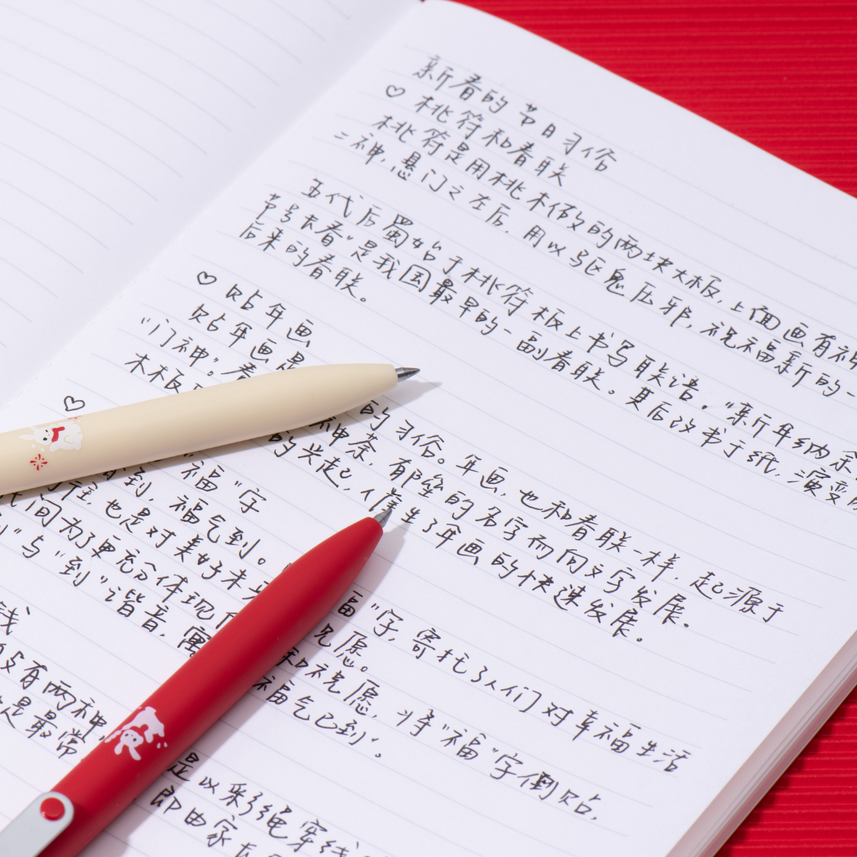 新春的节日习俗
♡ 桃符和春联
桃符是用桃木做的两块大板,上面画有神
二神,悬门之左右,用以驱鬼压邪,祝福新的一
五代后蜀始于桃符板上书写联语,"新年纳余
节号长春"是我国最早的一副春联。其后改书于纸,演变
后来的春联。
♡ 贴年画
贴年画是 的习俗。年画,也和春联一样,起源于
"门神"。春 神荼,郁垒的名字而向文字发展。
木板 的兴起, 催生了年画的快速发展。
♡
"福"字
到,福气到。 福"字,寄托了人们对幸福生活
往,也是对美好未 祝愿。
民间为了更充分体现 和祝愿,将"福"字倒贴,
"与"到"谐音,寓 福气已到"。
钱
有两种
是最常 是以彩绳穿线
即由家